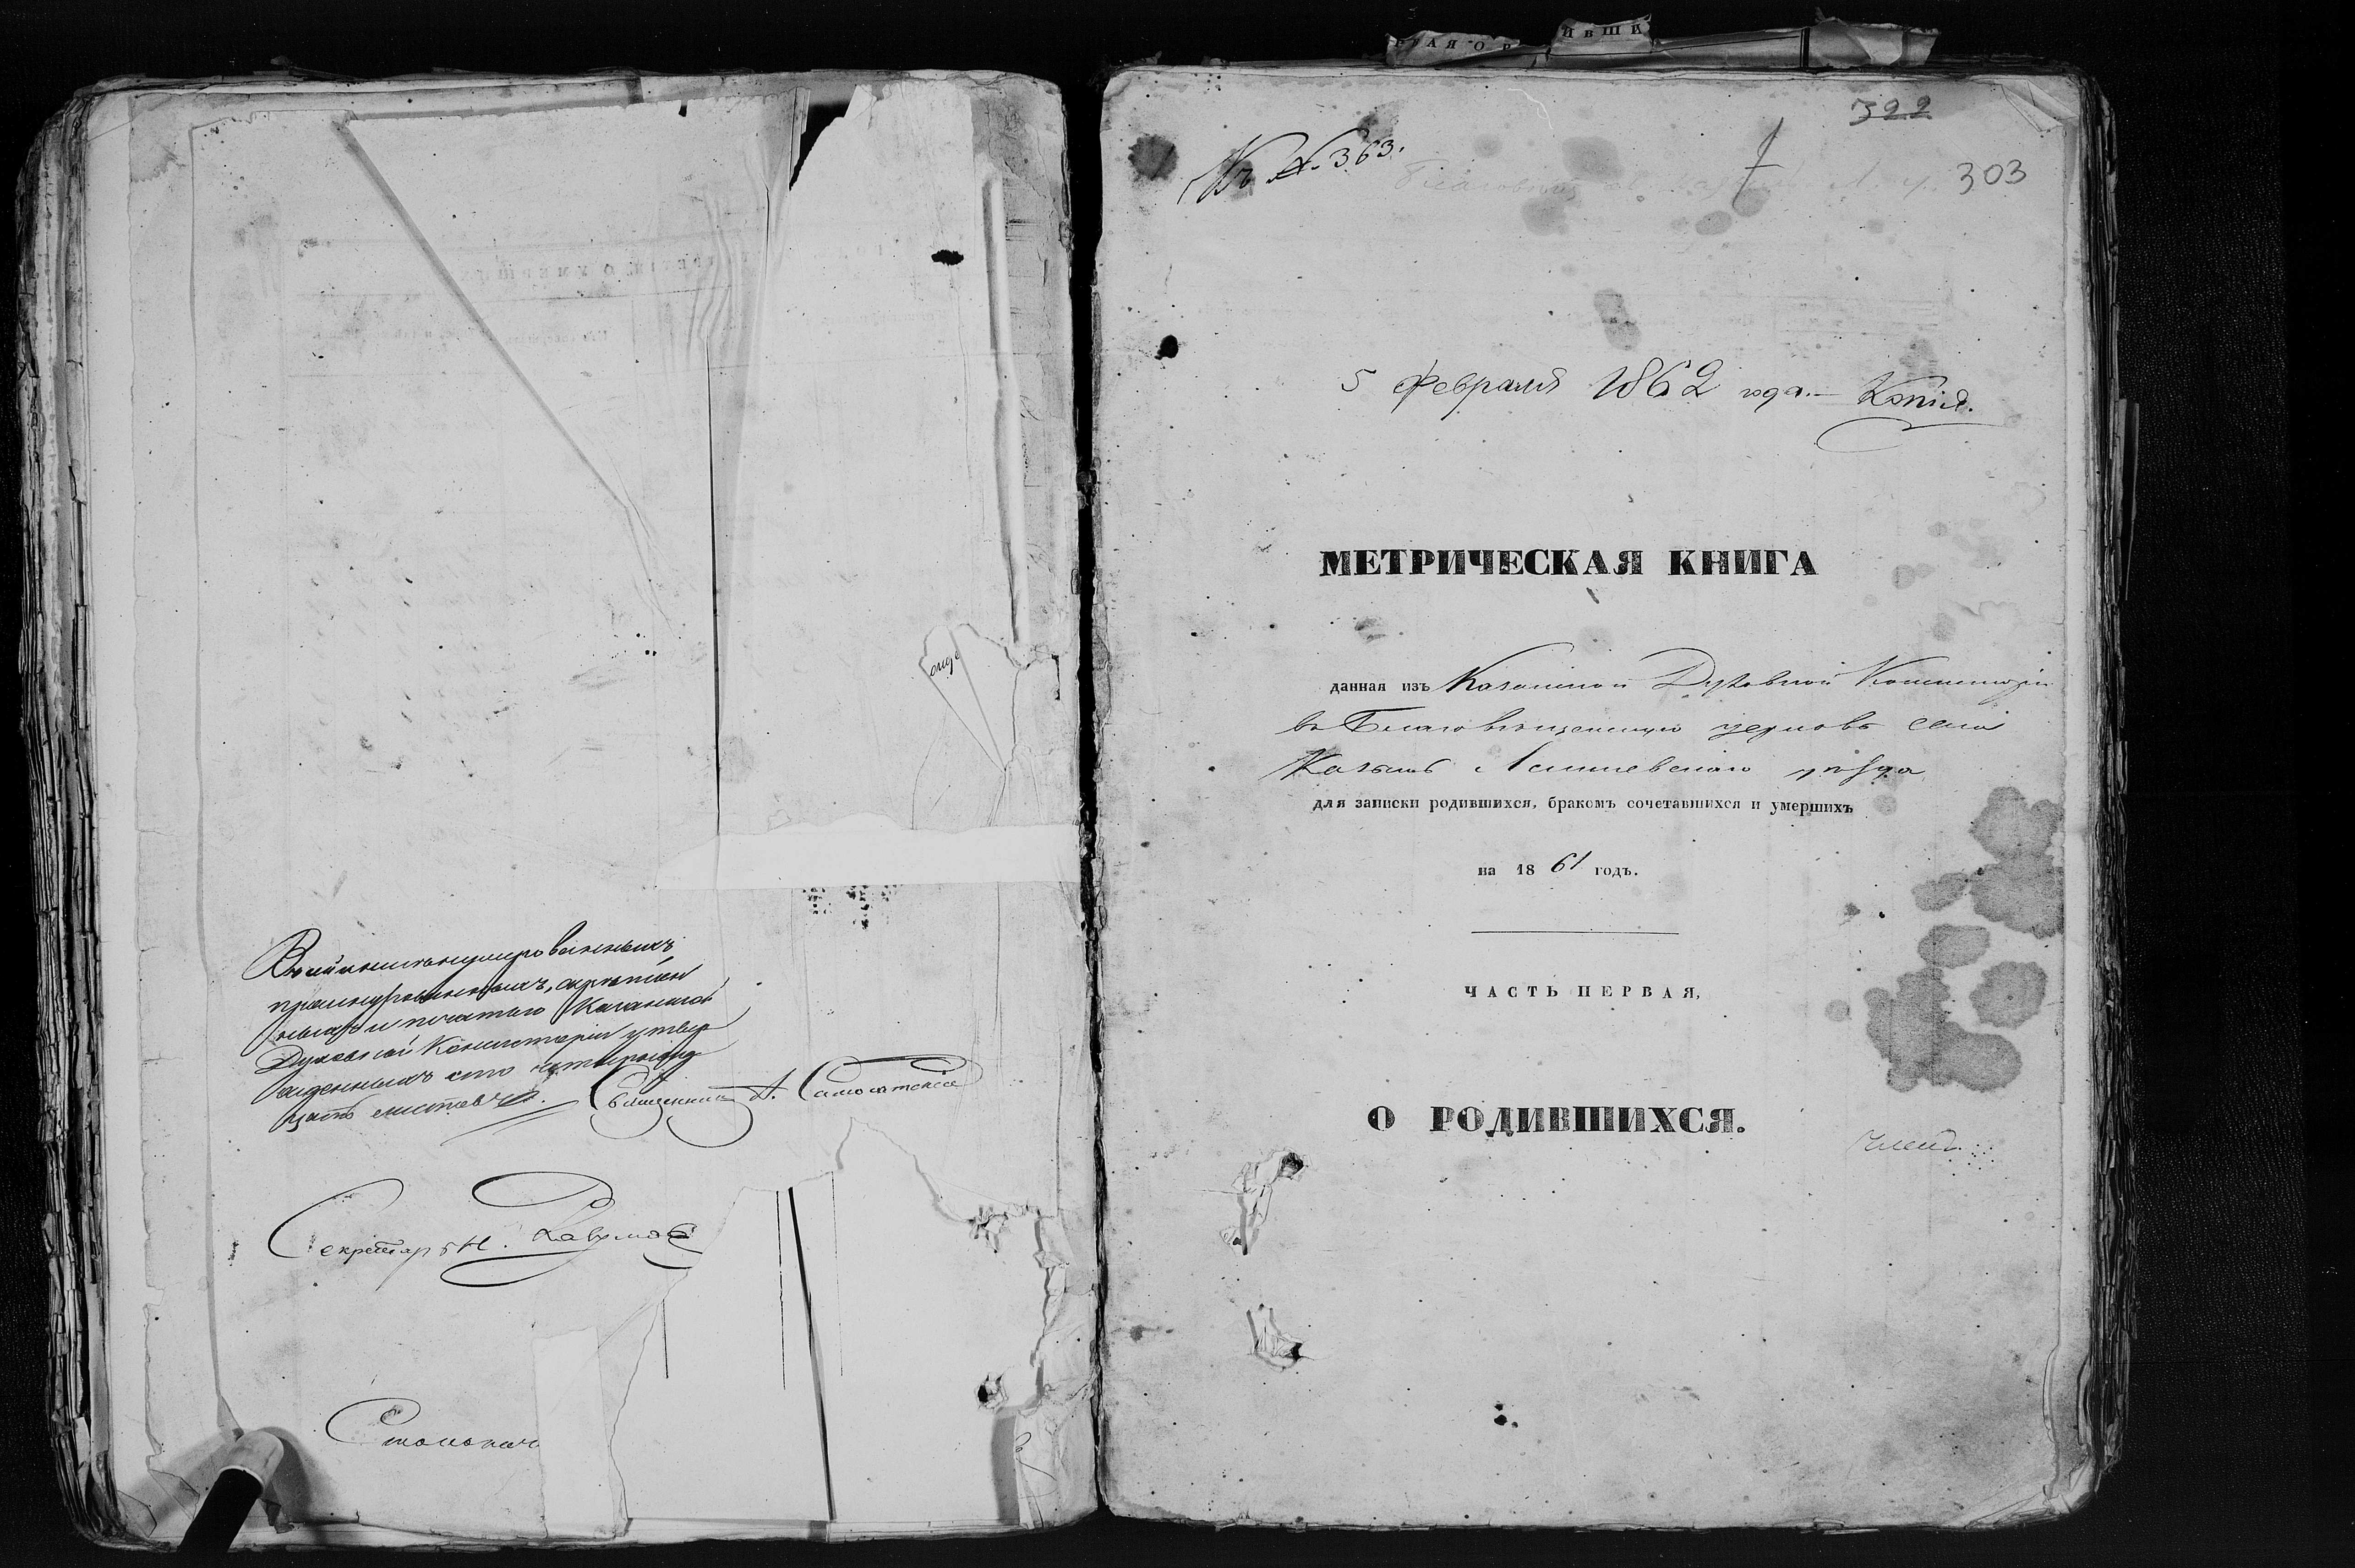 В сей книгѣ нумерованныхъ
прошнурованныхъ, скрѣплен
ныхъ и печатью Казанской
Духовной Консисторіи утвер
жденныхъ сто четырнад
цать листовъ. Священникъ А. Самосатскій
Секретарь Н.
Столонач
ВАЯ О Р ИВШИ
322
Къ №. 363.
303
5 Февраля 1862 года. — Копія.
МЕТРИЧЕСКАЯ КНИГА
данная изъ Казанской Духовной Консисторіи
въ Благовѣщенскую церковь села
Лаишевскаго уѣзда
для записки родившихся, бракомъ сочетавшихся и умершихъ
на 1861 годъ.
ЧАСТЬ ПЕРВАЯ,
О РОДИВШИХСЯ.